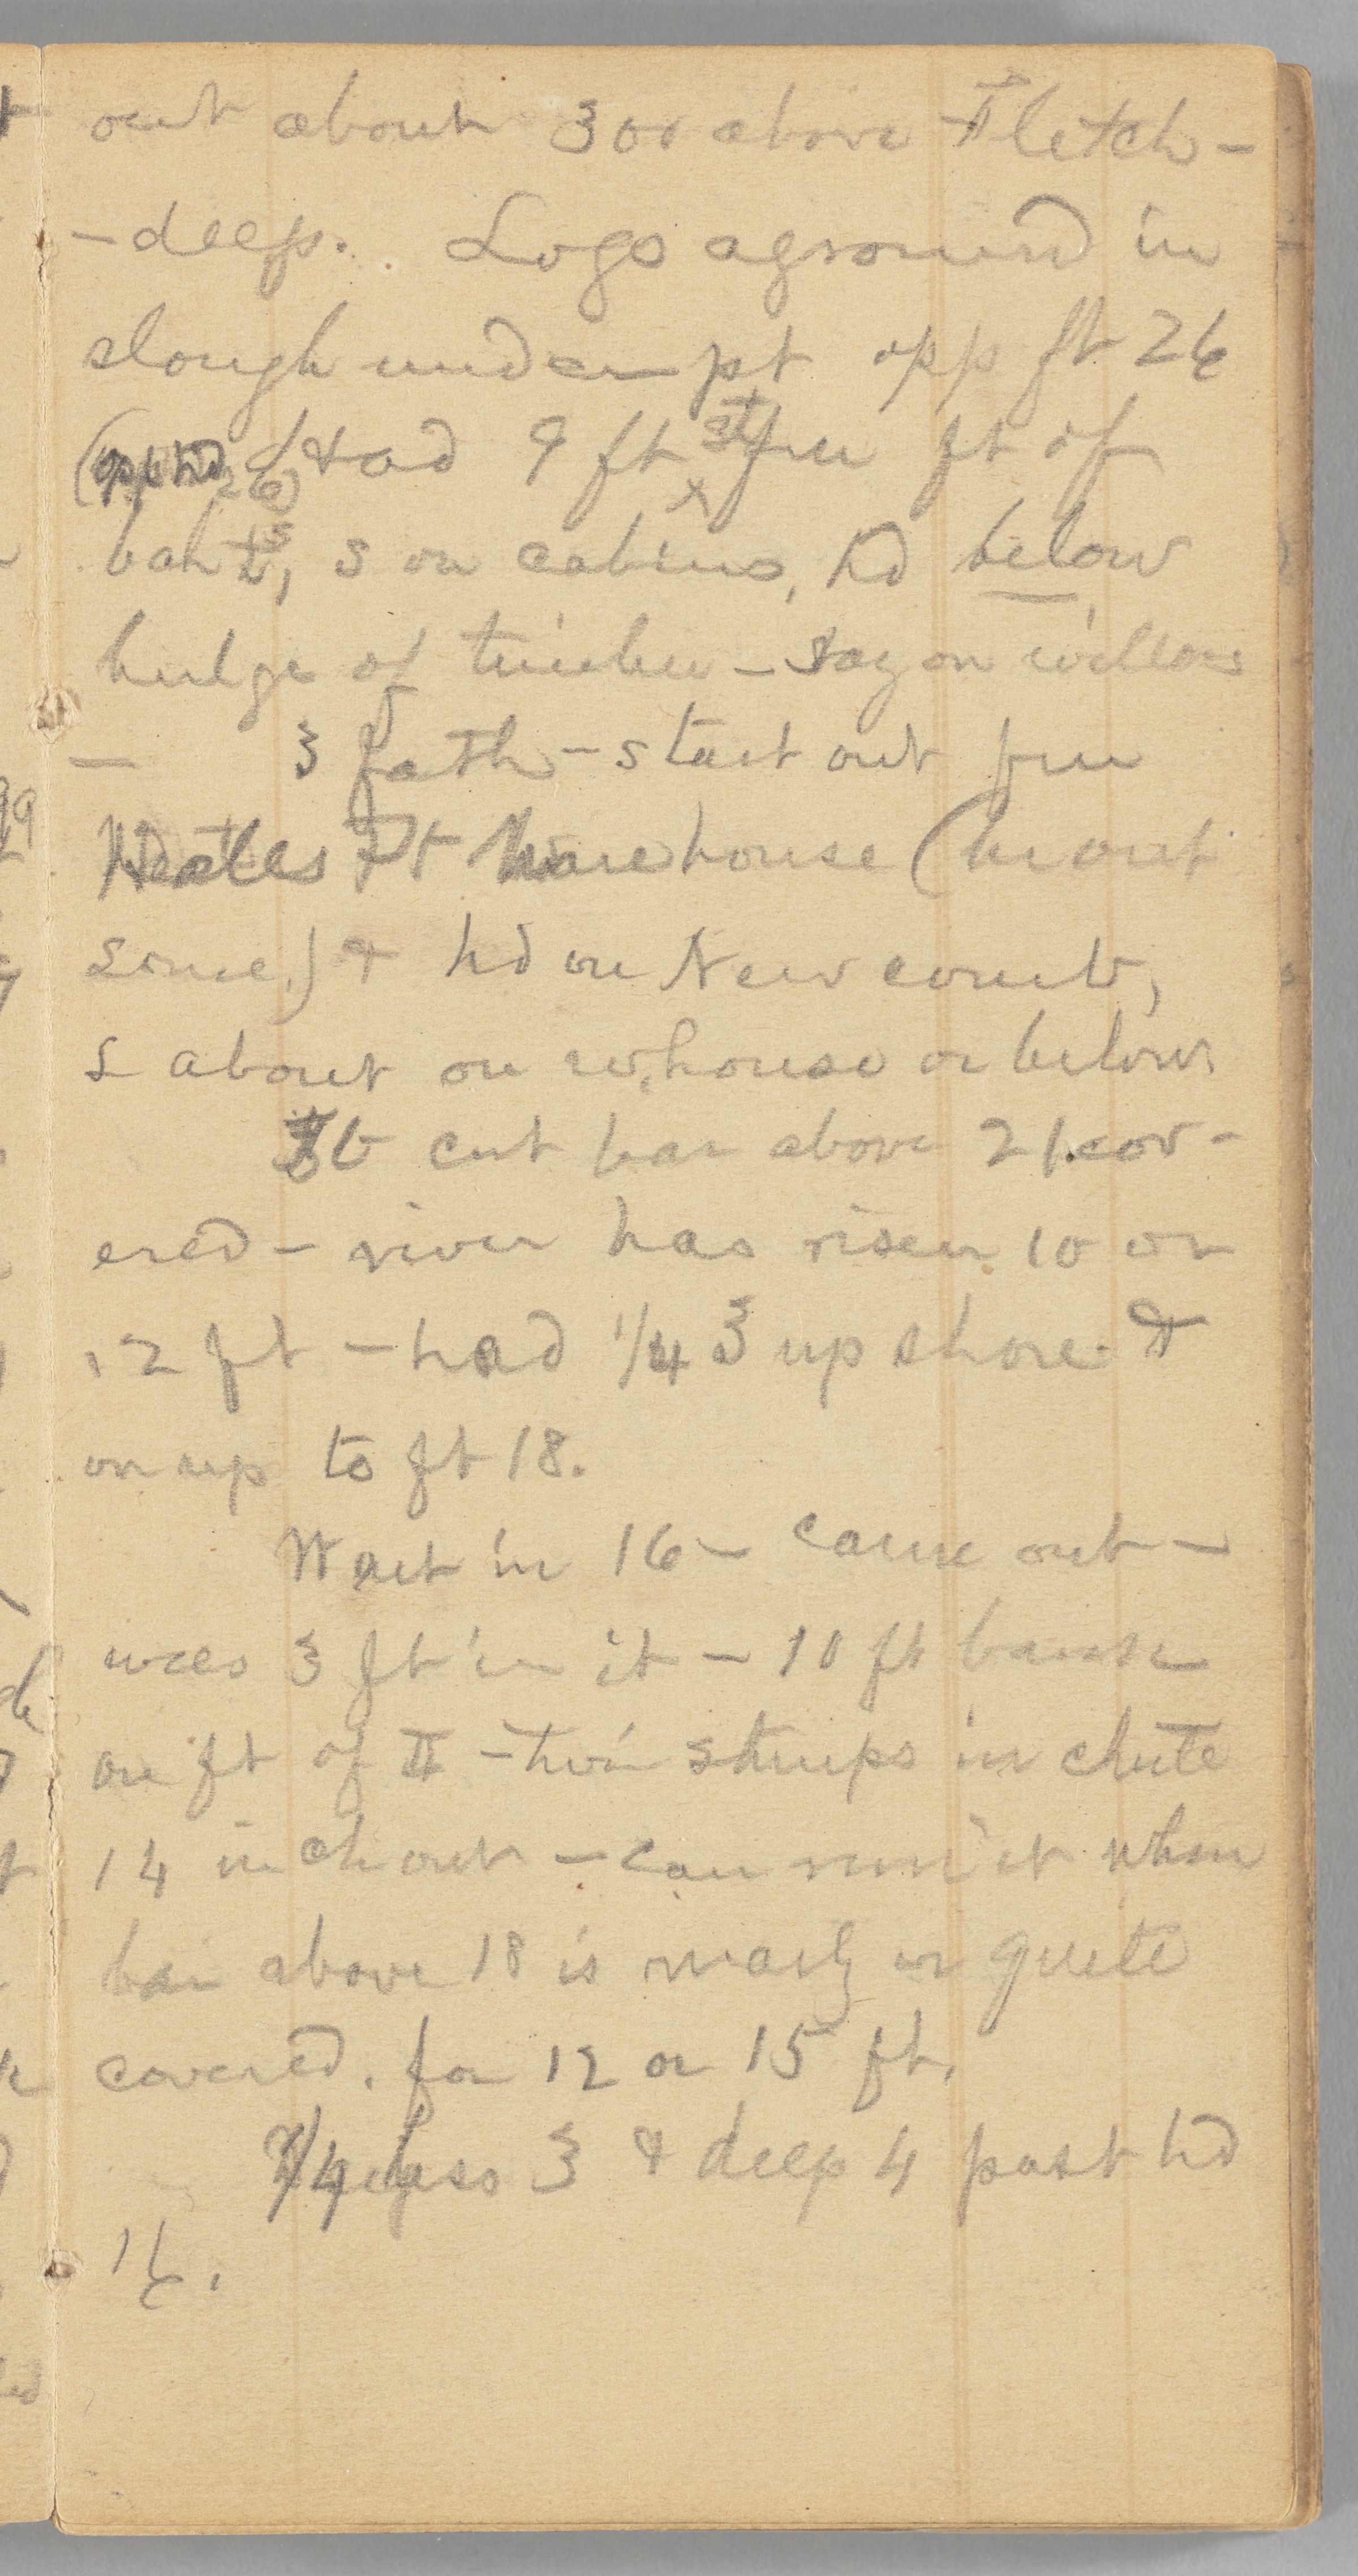 out about 300 above Fletch-
- deep. Logs aground in
slough under pt opp ft 26
(opp hd of 26) Had 9 ft st fm ft of
bar, S on cabins, hd below
bulge of timber - say on willows
— 3 fath - start out fm
Pt Warehouse (burnt
since.) & hd on Newcomb,
S about on w.house or below.
cut bar above 21 cov-
ered - river has risen 10 or
12 ft - had 1/4 3 up shore &
on up to ft 18.
Went in 16 - came out -
was 3 ft in it - 10 ft bank
on ft of II - two stumps in chute
14 in ch out - can run it when
bar above 18 is nearly or quite
covered. for 12 or 15 ft.
1/4 less 3 & deep 4 past hd
16.